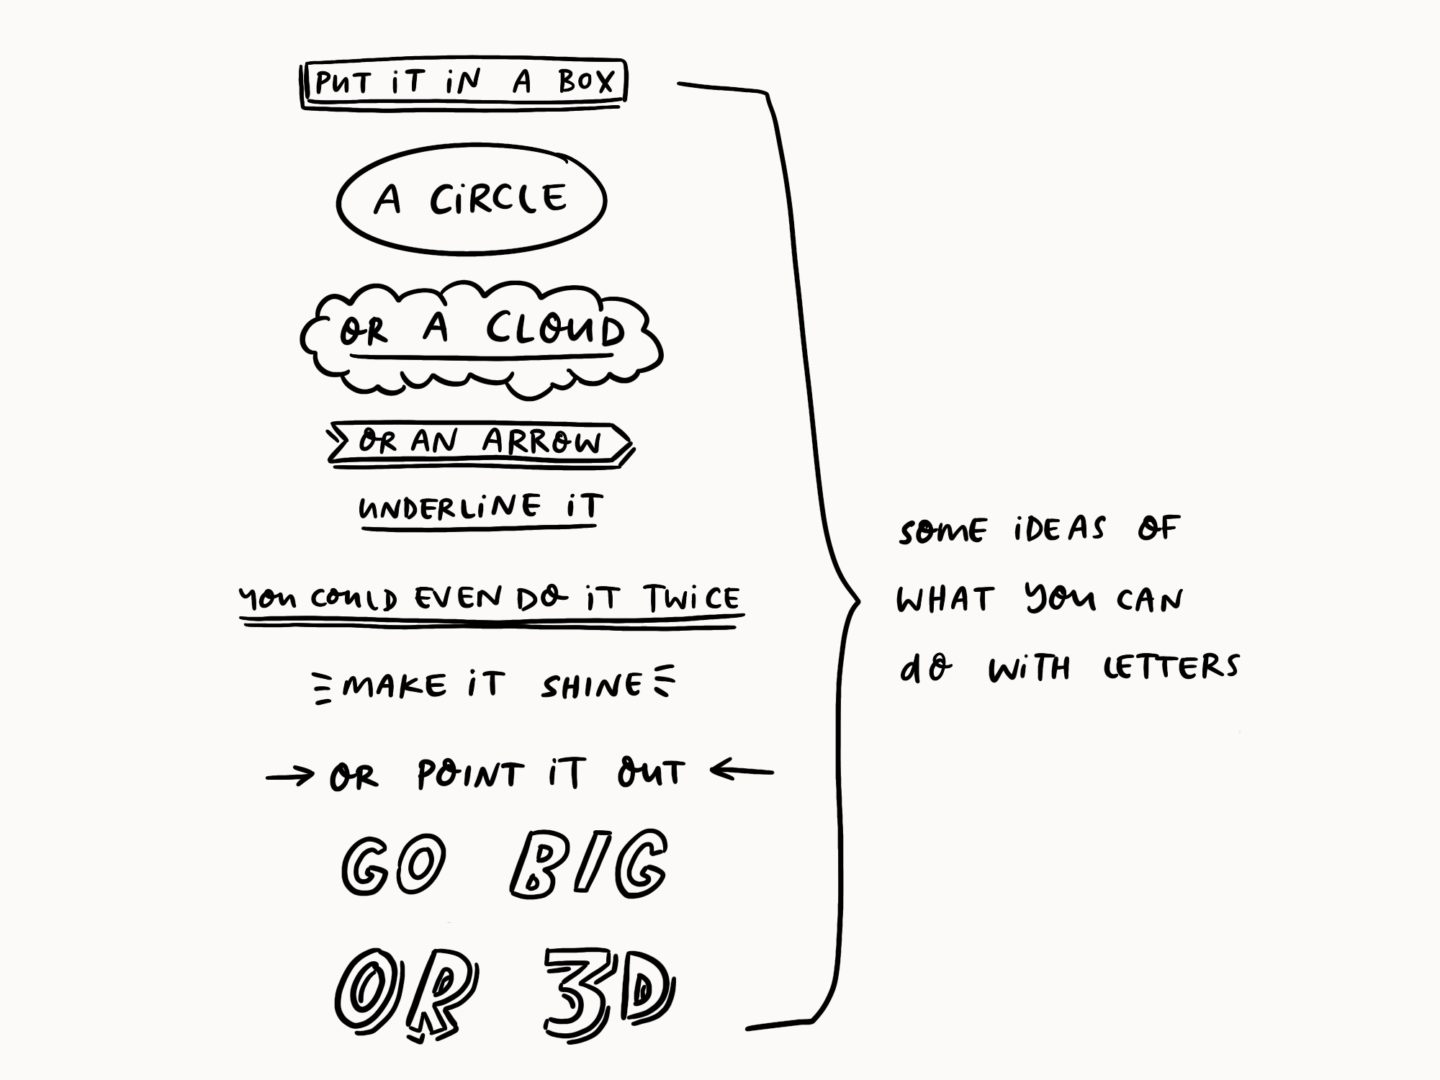 PUT iT iN A BOX
A CiRCLE
OR A CLOUD
OR AN ARROW
UNDERLiNE iT
YOU COULD EVEN DO iT TWiCE
MAKE iT SHINE
OR POINT iT OUT
GO BIG
OR 3D
SOME iDEAS OF
WHAT YOU CAN
dO WiTH LETTERS